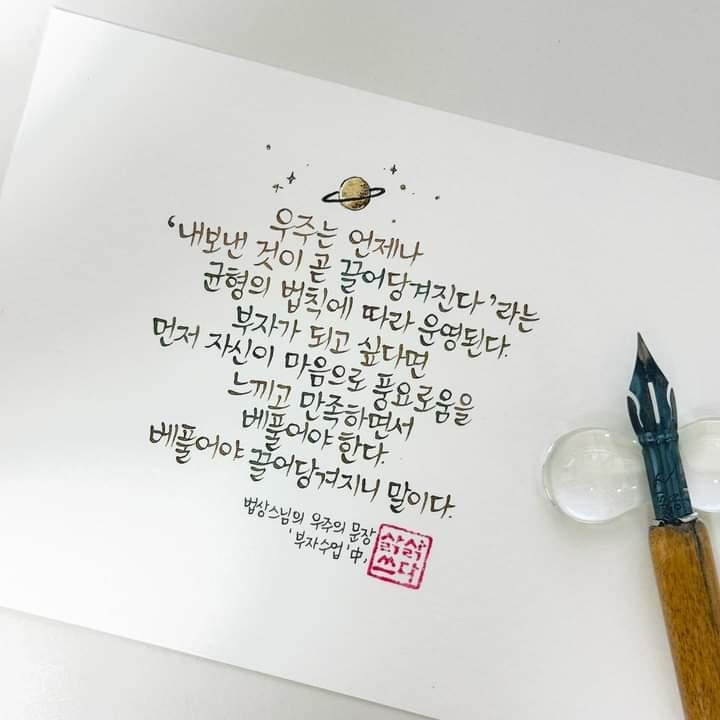 우주는 언제나
'내보낸 것이 곧 끌어당겨진다'라는
균형의 법칙에 따라 운영된다.
부자가 되고 싶다면
먼저 자신이 마음으로 풍요로움을
느끼고 만족하면서
베풀어야 한다.
베풀어야 끌어당겨지니 말이다.
법상스님의 우주의 문장
'부자수업'中,
삶삶
쓰다